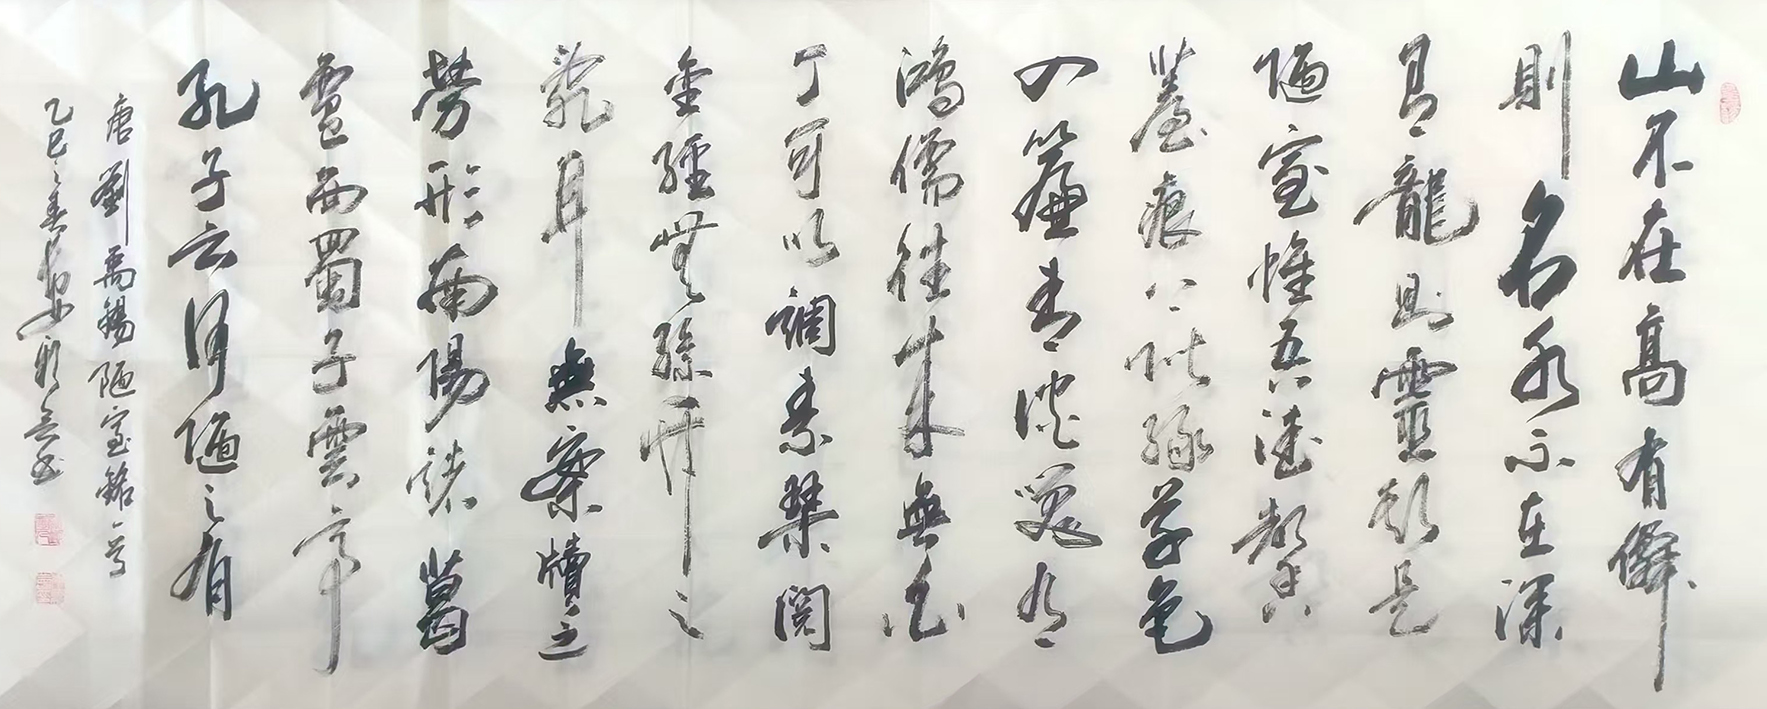 山不在高有僊
則名水不在深
有龍則靈斯是
陋室惟吾德馨
薹痕上階緑草色
入簾青談笑有
鴻儒往來無白
丁可以調素琴閱
金經無絲竹之
亂耳無案牘之
勞形南陽諸葛
廬西蜀子雲亭
孔子云何陋之有
唐劉禹錫陋室銘一首
乙巳之春